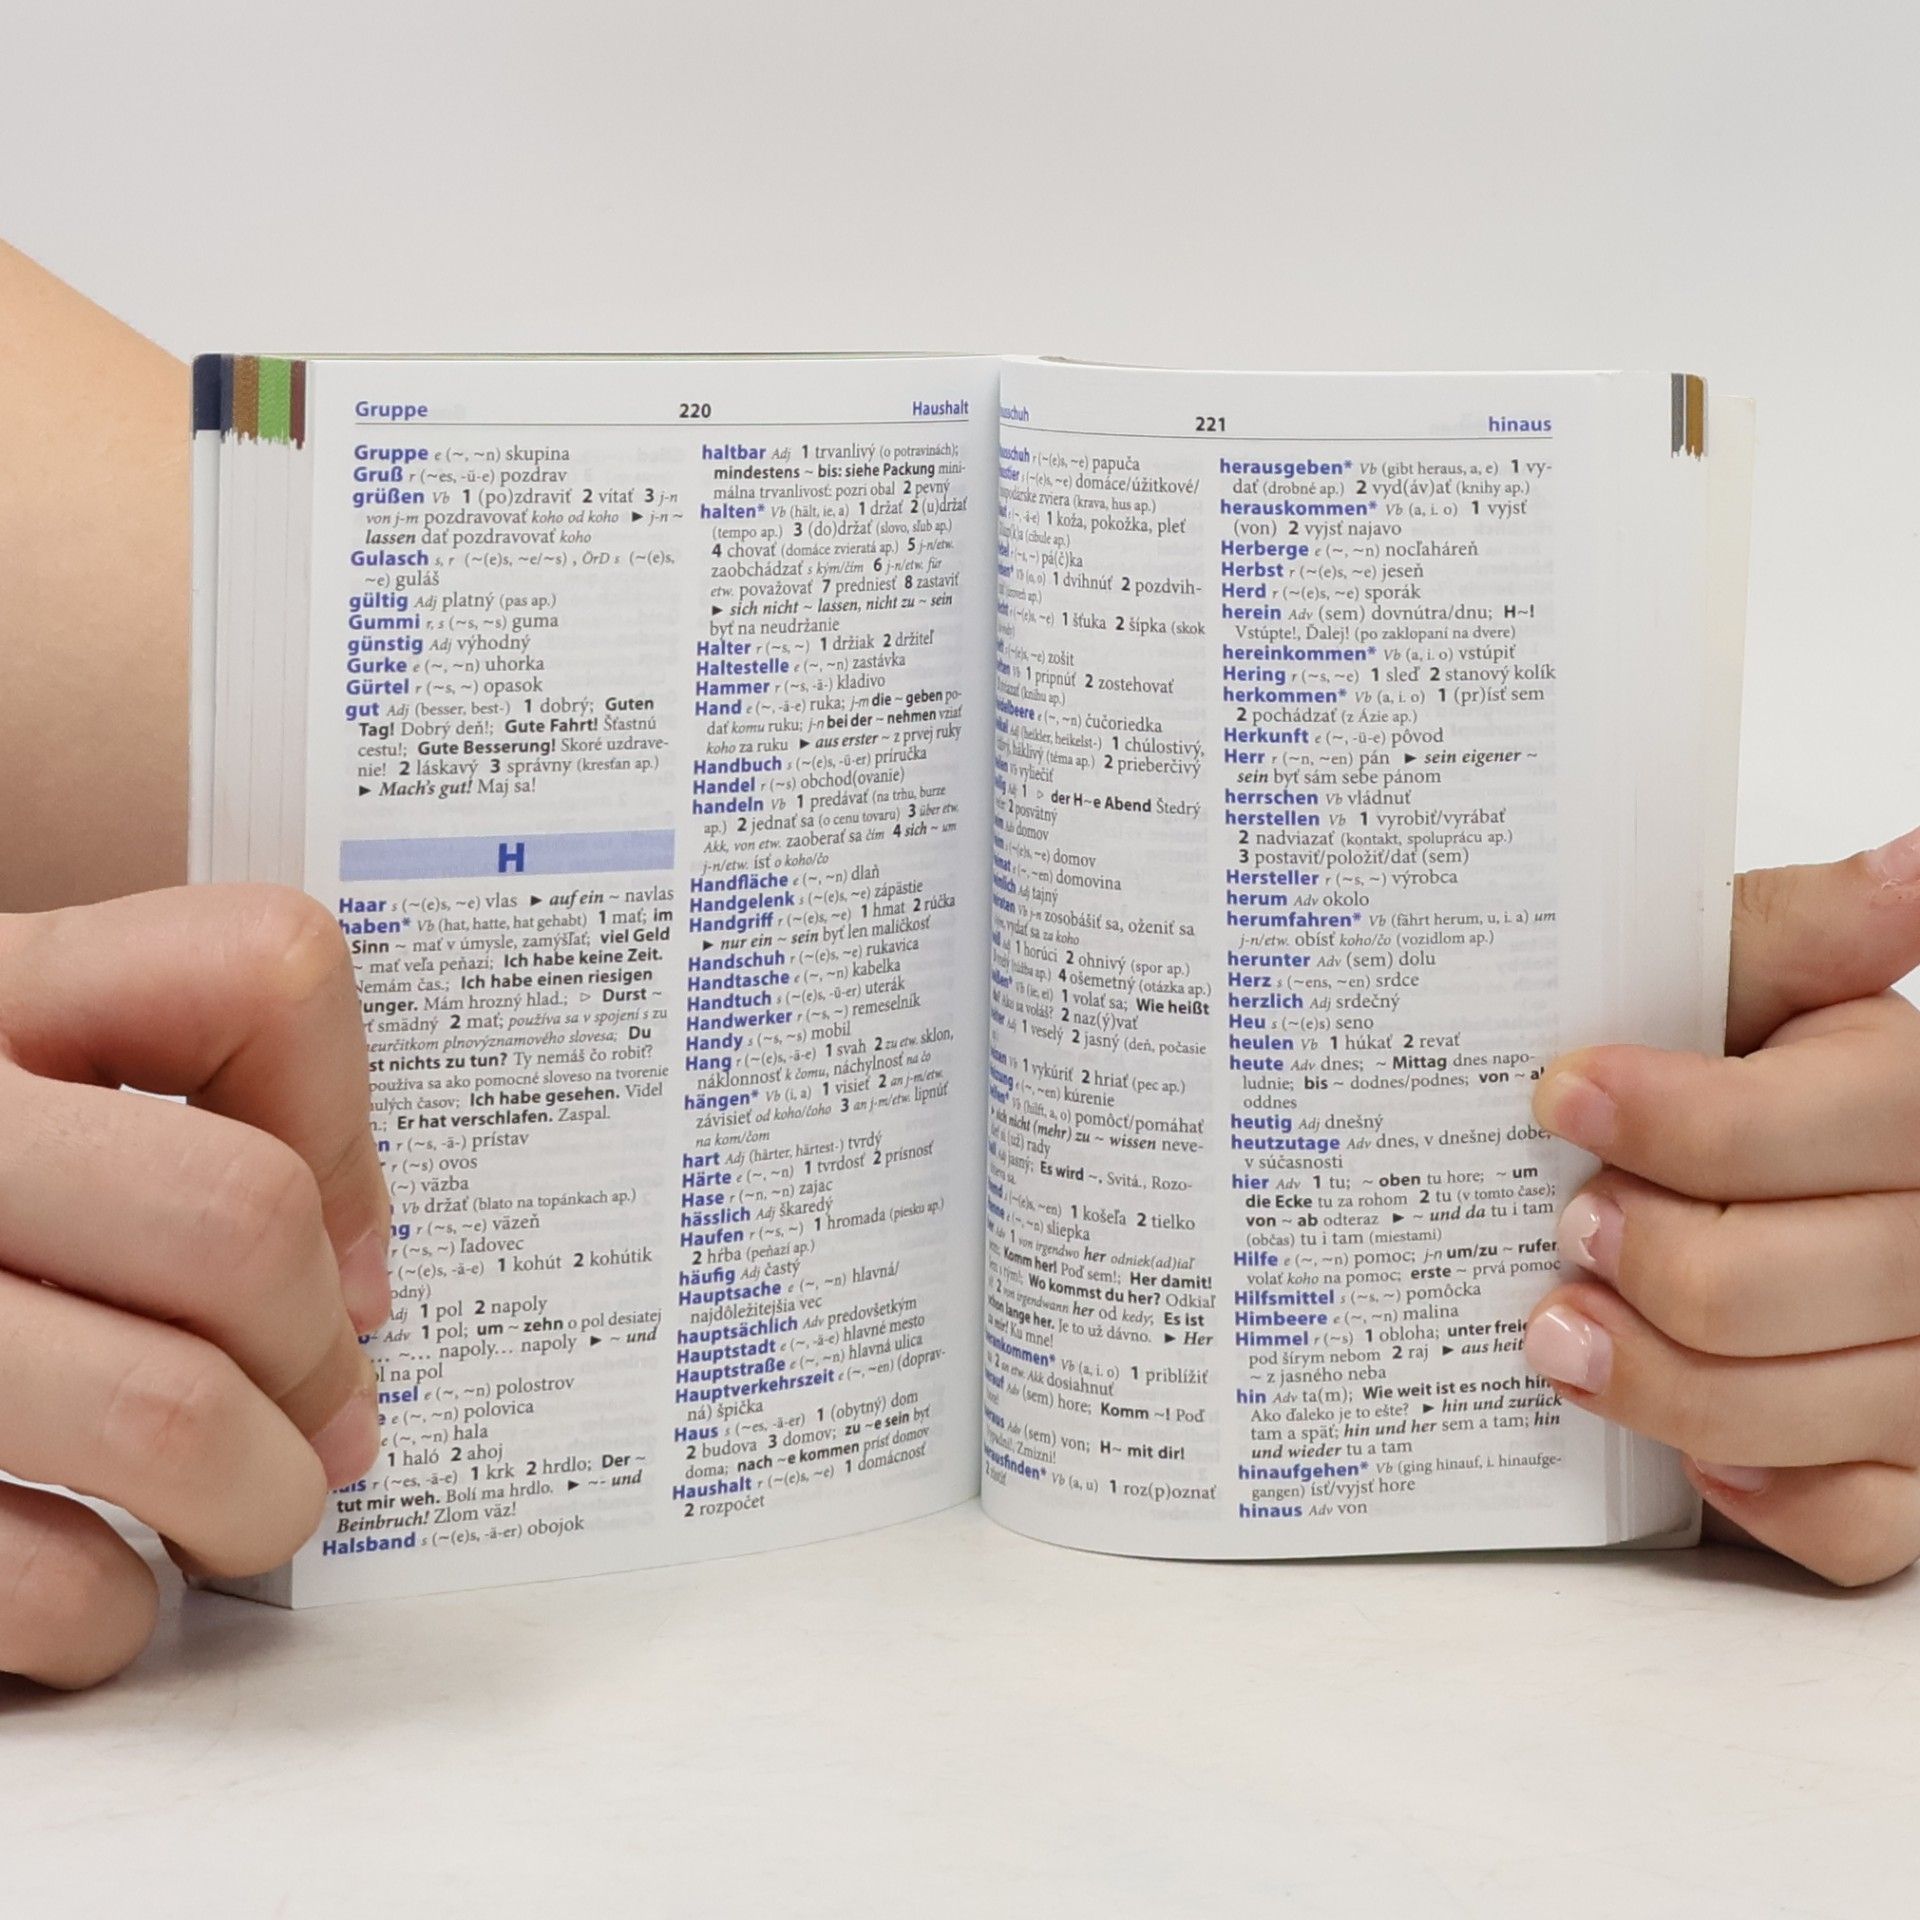 Gruppe 220 Haushalt
Gruppe e (~, ~n) skupina
Gruß r (~es, -ü-e) pozdrav
grüßen Vb 1 (po)zdraviť 2 vítať 3 j-n
von j-m pozdravovať koho od koho ► j-n ~
lassen dať pozdravovať koho
Gulasch s, r (~(e)s, ~e/~s) , ÖrD s (~(e)s,
~e) guláš
gültig Adj platný (pas ap.)
Gummi r, s (~s, ~s) guma
günstig Adj výhodný
Gurke e (~, ~n) uhorka
Gürtel r (~s, ~) opasok
gut Adj (besser, best-) 1 dobrý; Guten
Tag! Dobrý deň!; Gute Fahrt! Šťastnú
cestu!; Gute Besserung! Skoré uzdrave-
nie! 2 láskavý 3 správny (kresťan ap.)
► Mach's gut! Maj sa!
H
Haar s (~(e)s, ~e) vlas ► auf ein ~ navlas
haben* Vb (hat, hatte, hat gehabt) 1 mať; im
Sinn ~ mať v úmysle, zamýšľať; viel Geld
~ mať veľa peňazí; Ich habe keine Zeit.
Nemám čas.; Ich habe einen riesigen
Hunger. Mám hrozný hlad.; ▷ Durst ~
smädný 2 mať; používa sa v spojení s zu
neurčitkom plnovýznamového slovesa; Du
nichts zu tun? Ty nemáš čo robiť?
používa sa ako pomocné sloveso na tvorenie
časov; Ich habe gesehen. Videl
Er hat verschlafen. Zaspal.
r (~s, -ä-) prístav
r (~s) ovos
(~) väzba
Vb držať (blato na topánkach ap.)
r (~s, ~e) väzeň
r (~s, ~) ľadovec
(~(e)s, -ä-e) 1 kohút 2 kohútik
1 pol 2 napoly
Adv 1 pol; um ~ zehn o pol desiatej
~… napoly… napoly ► ~ und
na pol
e (~, ~n) polostrov
e (~, ~n) polovica
e (~, ~n) hala
1 haló 2 ahoj
r (~es, -ä-e) 1 krk 2 hrdlo; Der ~
tut mir weh. Bolí ma hrdlo. ► ~- und
Beinbruch! Zlom väz!
Halsband s (~(e)s, -ä-er) obojok
haltbar Adj 1 trvanlivý (o potravinách);
mindestens ~ bis: siehe Packung mini-
málna trvanlivosť: pozri obal 2 pevný
halten* Vb (hält, ie, a) 1 držať 2 (u)držať
(tempo ap.) 3 (do)držať (slovo, sľub ap.)
4 chovať (domáce zvieratá ap.) 5 j-n/etw.
zaobchádzať s kým/čím 6 j-n/etw. für
etw. považovať 7 predniesť 8 zastaviť
► sich nicht ~ lassen, nicht zu ~ sein
byť na neudržanie
Halter r (~s, ~) 1 držiak 2 držiteľ
Haltestelle e (~, ~n) zastávka
Hammer r (~s, -ä-) kladivo
Hand e (~, -ä-e) ruka; j-m die ~ geben po-
dať komu ruku; j-n bei der ~ nehmen vziať
koho za ruku ► aus erster ~ z prvej ruky
Handbuch s (~(e)s, -ü-er) príručka
Handel r (~s) obchod(ovanie)
handeln Vb 1 predávať (na trhu, burze
ap.) 2 jednať sa (o cenu tovaru) 3 über etw.
Akk, von etw. zaoberať sa čím 4 sich ~ um
j-n/etw. ísť o koho/čo
Handfläche e (~, ~n) dlaň
Handgelenk s (~(e)s, ~e) zápästie
Handgriff r (~(e)s, ~e) 1 hmat 2 rúčka
► nur ein ~ sein byť len maličkosť
Handschuh r (~(e)s, ~e) rukavica
Handtasche e (~, ~n) kabelka
Handtuch s (~(e)s, -ü-er) uterák
Handwerker r (~s, ~) remeselník
Handy s (~s, ~s) mobil
Hang r (~(e)s, -ä-e) 1 svah 2 zu etw. sklon,
náklonnosť k čomu, náchylnosť na čo
hängen* Vb (i, a) 1 visieť 2 an j-m/etw.
závisieť od koho/čoho 3 an j-m/etw. lipnúť
na kom/čom
hart Adj (härter, härtest-) tvrdý
Härte e (~, ~n) 1 tvrdosť 2 prísnosť
Hase r (~n, ~n) zajac
hässlich Adj škaredý
Haufen r (~s, ~) 1 hromada (piesku ap.)
2 hŕba (peňazí ap.)
häufig Adj častý
Hauptsache e (~, ~n) hlavná/
najdôležitejšia vec
hauptsächlich Adv predovšetkým
Hauptstadt e (~, -ä-e) hlavné mesto
Hauptstraße e (~, ~n) hlavná ulica
Hauptverkehrszeit e (~, ~en) (doprav-
ná) špička
Haus s (~es, -ä-er) 1 (obytný) dom
2 budova 3 domov; zu ~e sein byť
doma; nach ~e kommen prísť domov
Haushalt r (~(e)s, ~e) 1 domácnosť
2 rozpočet
221 hinaus
r (~(e)s, ~e) papuča
s (~(e)s, ~e) domáce/úžitkové/
zviera (krava, hus ap.)
e (~, -ä-e) 1 koža, pokožka, pleť
(cibule ap.)
r (~s, ~) pá(č)ka
Vb (o, o) 1 dvihnúť 2 pozdvih-
r (~(e)s, ~e) 1 šťuka 2 šípka (skok
s (~(e)s, ~e) zošit
Vb 1 pripnúť 2 zostehovať
(knihu ap.)
e (~, ~n) čučoriedka
Adj (heikler, heikelst-) 1 chúlostivý,
háklivý (téma ap.) 2 prieberčivý
Vb vyliečiť
Adj 1 ▷ der H~e Abend Štedrý
2 posvätný
Adv domov
s (~(e)s, ~e) domov
e (~, ~en) domovina
Adj tajný
Vb j-n zosobášiť sa, oženiť sa
vydať sa za koho
1 horúci 2 ohnivý (spor ap.)
4 ošemetný (otázka ap.)
Vb (ie, ei) 1 volať sa; Wie heißt
2 naz(ý)vať
Adj 1 veselý 2 jasný (deň, počasie
Vb 1 vykúriť 2 hriať (pec ap.)
e (~, ~en) kúrenie
Vb (hilft, a, o) pomôcť/pomáhať
sich nicht (mehr) zu ~ wissen neve-
(už) rady
Adj jasný; Es wird ~, Svitá., Rozo-
s (~(e)s, ~en) 1 košeľa 2 tielko
e (~, ~n) sliepka
Adv 1 von irgendwo her odniek(ad)iaľ
Komm her! Poď sem!; Her damit!
Wo kommst du her? Odkiaľ
2 von irgendwann her od kedy; Es ist
schon lange her. Je to už dávno. ► Her
mir! Ku mne!
Vb (a, i. o) 1 priblížiť
2 an etw. Akk dosiahnuť
Adv (sem) hore; Komm ~! Poď
Adv (sem) von; H~ mit dir!
Zmizni!
Vb (a, u) 1 roz(p)oznať
herausgeben* Vb (gibt heraus, a, e) 1 vy-
dať (drobné ap.) 2 vyd(áv)ať (knihy ap.)
herauskommen* Vb (a, i. o) 1 vyjsť
(von) 2 vyjsť najavo
Herberge e (~, ~n) nocľaháreň
Herbst r (~(e)s, ~e) jeseň
Herd r (~(e)s, ~e) sporák
herein Adv (sem) dovnútra/dnu; H~!
Vstúpte!, Ďalej! (po zaklopaní na dvere)
hereinkommen* Vb (a, i. o) vstúpiť
Hering r (~s, ~e) 1 sleď 2 stanový kolík
herkommen* Vb (a, i. o) 1 (pr)ísť sem
2 pochádzať (z Ázie ap.)
Herkunft e (~, -ü-e) pôvod
Herr r (~n, ~en) pán ► sein eigener ~
sein byť sám sebe pánom
herrschen Vb vládnuť
herstellen Vb 1 vyrobiť/vyrábať
2 nadviazať (kontakt, spoluprácu ap.)
3 postaviť/položiť/dať (sem)
Hersteller r (~s, ~) výrobca
herum Adv okolo
herumfahren* Vb (fährt herum, u, i. a) um
j-n/etw. obísť koho/čo (vozidlom ap.)
herunter Adv (sem) dolu
Herz s (~ens, ~en) srdce
herzlich Adj srdečný
Heu s (~(e)s) seno
heulen Vb 1 húkať 2 revať
heute Adv dnes; ~ Mittag dnes napo-
ludnie; bis ~ dodnes/podnes; von ~ a
oddnes
heutig Adj dnešný
heutzutage Adv dnes, v dnešnej dobe,
v súčasnosti
hier Adv 1 tu; ~ oben tu hore; ~ um
die Ecke tu za rohom 2 tu (v tomto čase);
von ~ ab odteraz ► ~ und da tu i tam
(občas) tu i tam (miestami)
Hilfe e (~, ~n) pomoc; j-n um/zu ~ rufen
volať koho na pomoc; erste ~ prvá pomoc
Hilfsmittel s (~s, ~) pomôcka
Himbeere e (~, ~n) malina
Himmel r (~s) 1 obloha; unter freie
pod šírym nebom 2 raj ► aus heit
~ z jasného neba
hin Adv ta(m); Wie weit ist es noch hin
Ako ďaleko je to ešte? ► hin und zurück
tam a späť; hin und her sem a tam; hin
und wieder tu a tam
hinaufgehen* Vb (ging hinauf, i. hinaufge-
gangen) ísť/vyjsť hore
hinaus Adv von